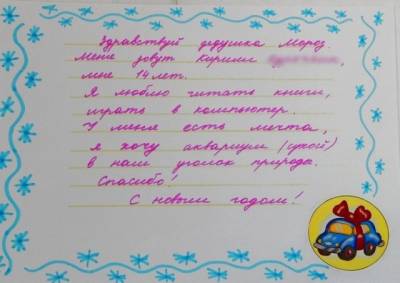 Здравствуй дедушка Мороз.
Меня зовут Кирилл
мне 14 лет.
Я люблю читать книги,
играть в компьютер.
У меня есть мечта,
я хочу аквариум (сухой)
в наш уголок природы.
Спасибо!
С новым годом!